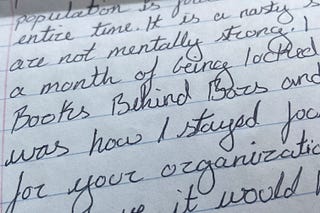 population is
entire time. It is a nasty s
are not mentally strong. I
a month of being locked
Books Behind Bars and
was how I stayed foc
for your organizatio
it would